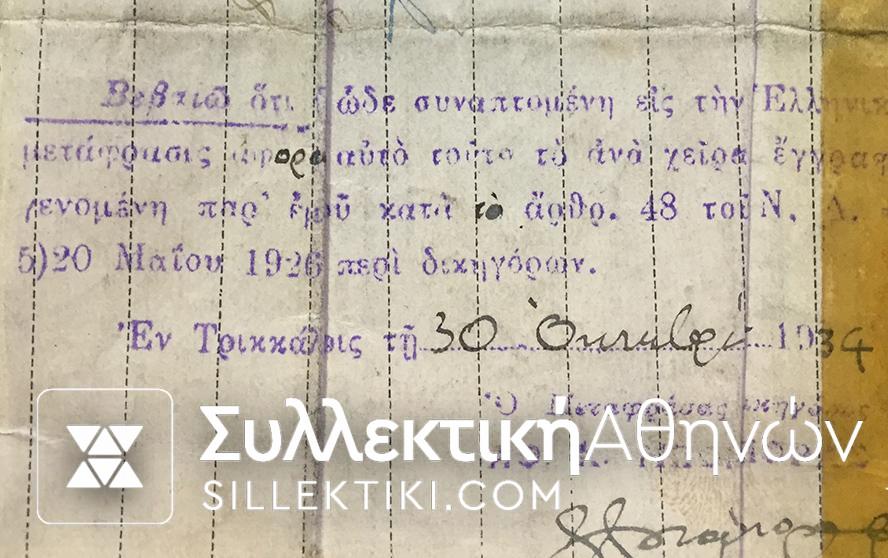 Βεβαιῶ ὅτι ὧδε συναπτομένη εἰς τὴν Ἑλληνικ
μετάφρασις ἀφορᾷ αὐτὸ τοῦτο τὸ ἀνὰ χεῖρα ἔγγραφ
γενομένη παρ' ἐμοῦ κατὰ τὸ ἄρθρ. 48 τοῦ Ν. Δ.
5)20 Μαΐου 1926 περὶ δικηγόρων.
Ἐν Τρικκάλοις τῇ 30 Ὀκτωβρί 1934
Ὁ Μεταφράσας
ΣυλλεκτικήΑθηνών
SILLEKTIKI.COM